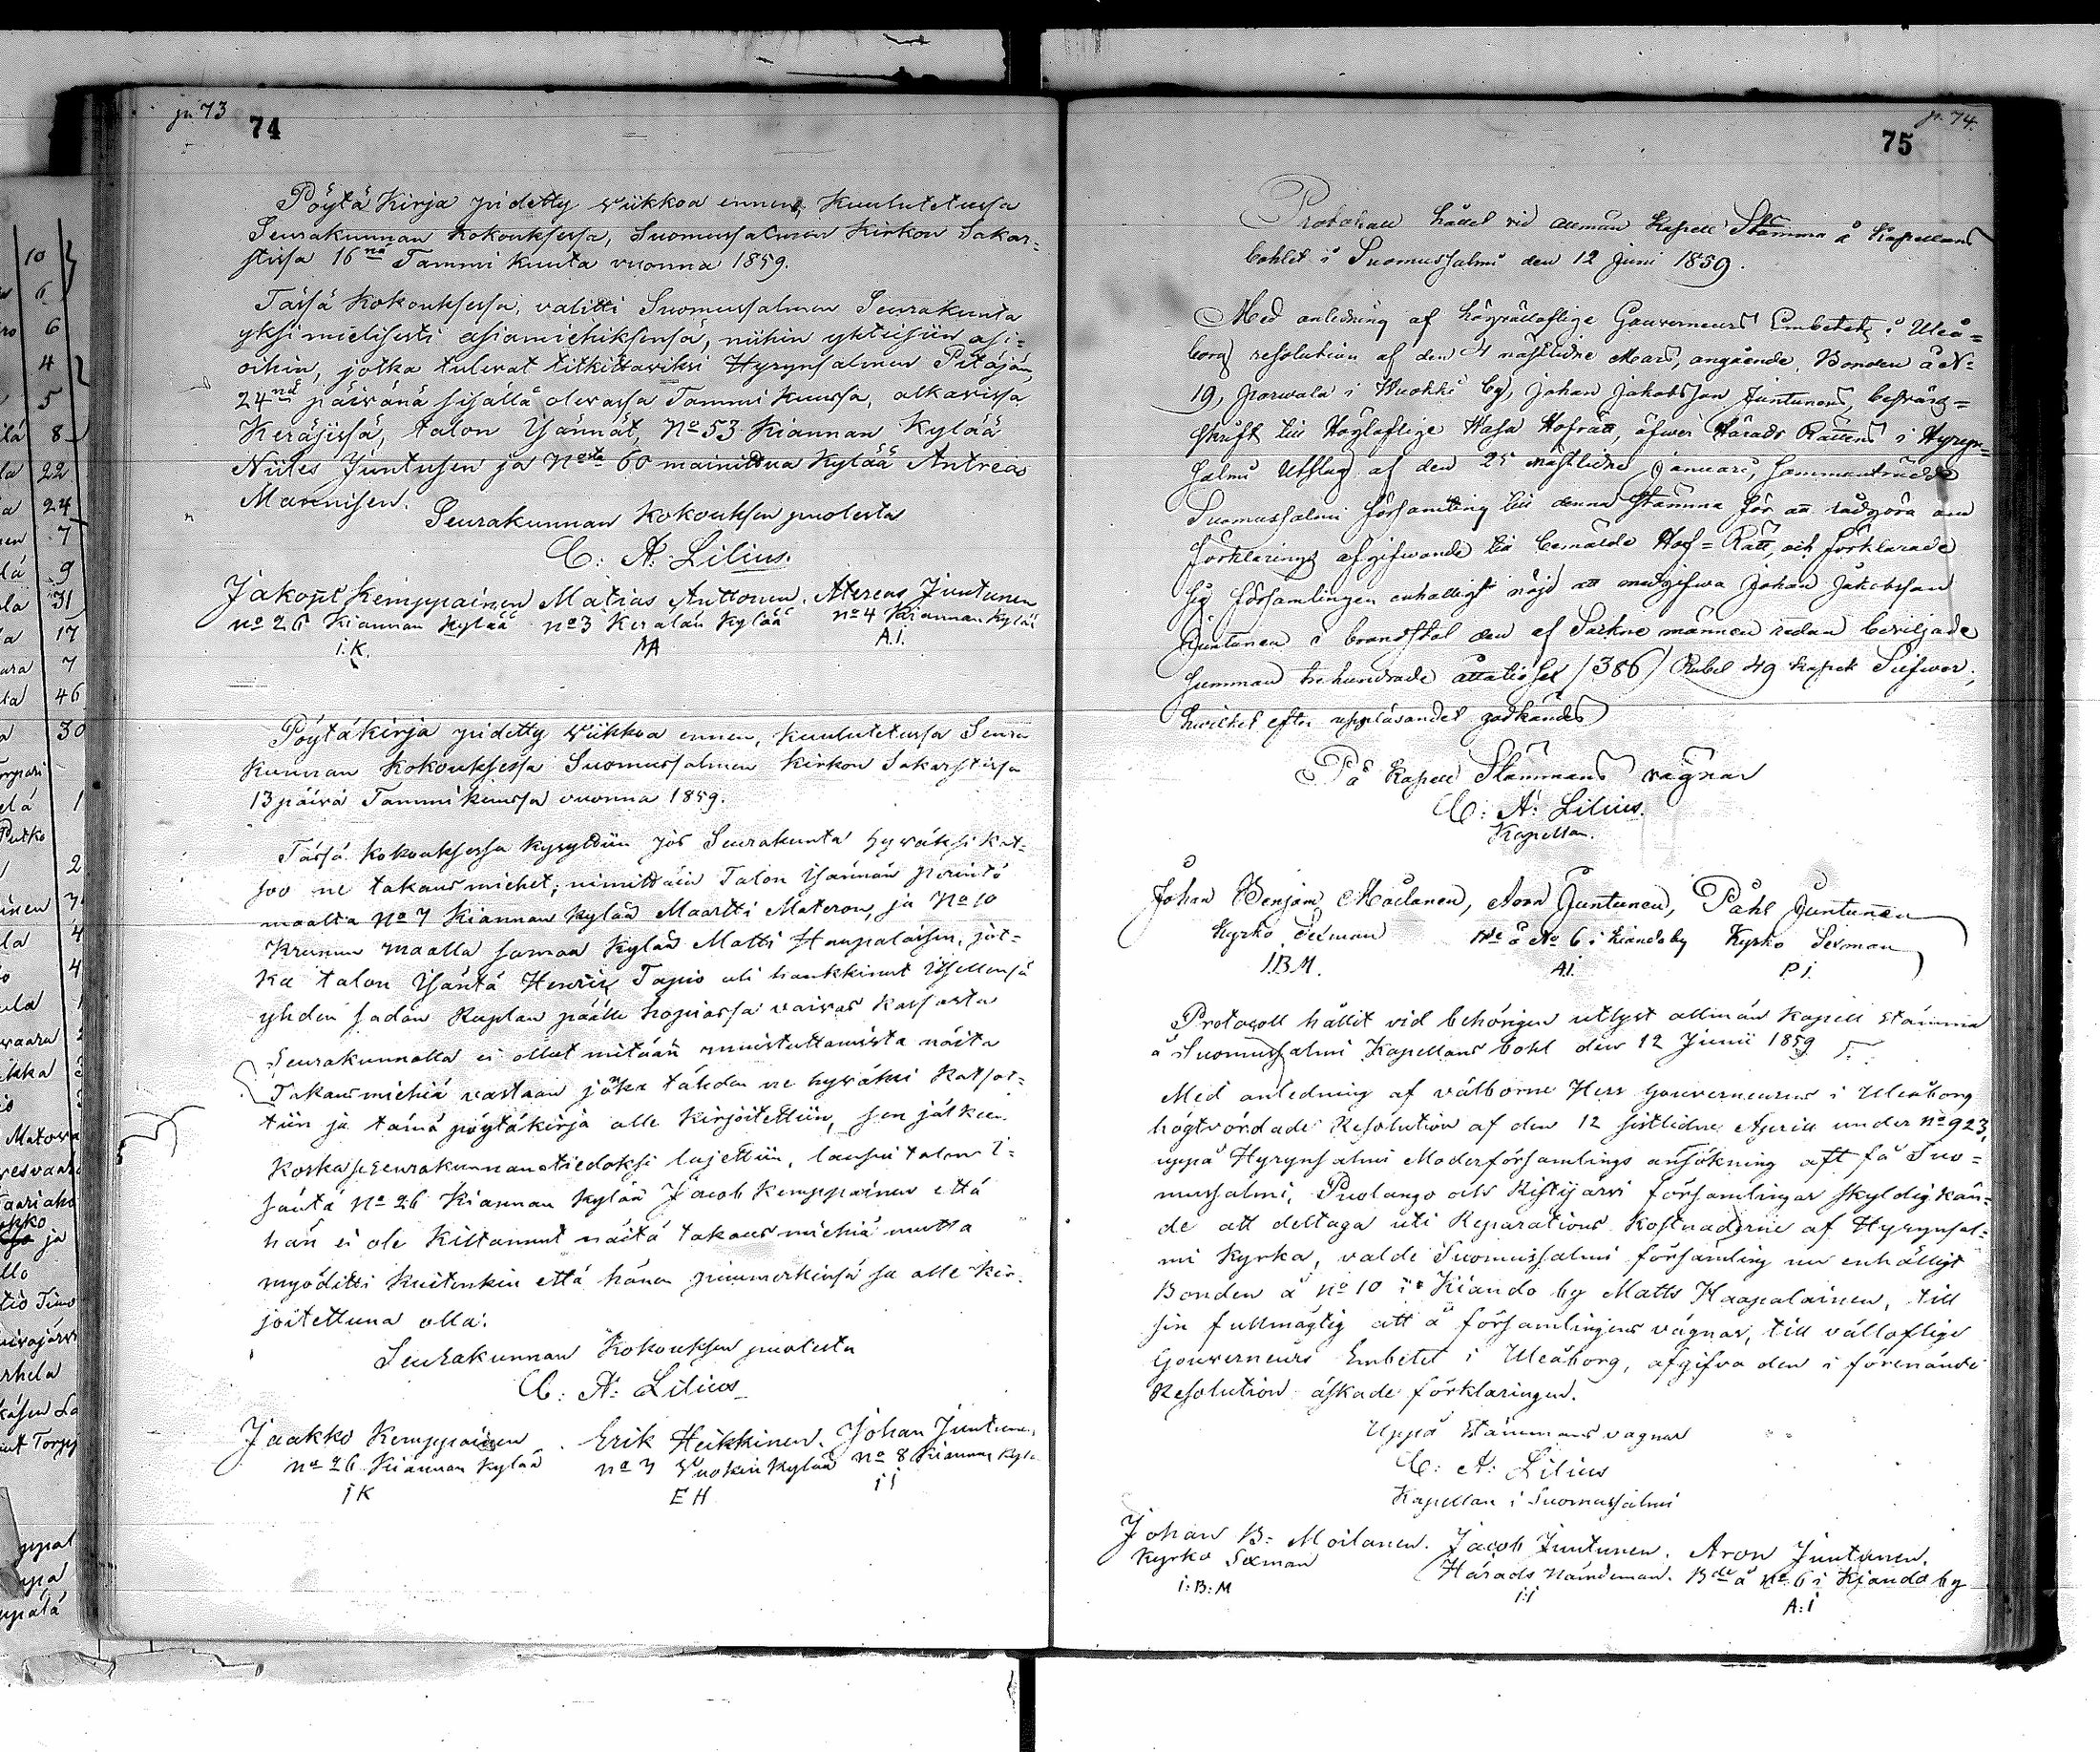 pr. 73
74
Pöytä Kirja pidetty wiikkoa ennen, Kuulutetussa
Seurakunnan Kokouksessa, Suomussalmen Kirkon Sakar=
stissa 16na Tammi Kuuta vuonna 1859.
Tässä Kokouksessa, valitti Suomussalmen Seurakunta
yksimielisesti asiamiehiksensä, niihin yhteisiin asi=
oihin, jotka tulevat titkittäviksi Hyrynsalmen Pitäjän,
24nä päivänä sisällä olevassa Tammi Kuussa, alkavissa
Keräjissä, talon Isännät, No 53 Kiannan Kylää
Niiles Juntusen ja No 60 mainittua Kylää Antreas
Mannisen.
Seurakunnan Kokouksen puolesta
C: A: Lilius.
Jakop Kemppainen Matias Anttonen. Atreas Juntunen
no 26 Kiannan Kylää no 3 Keralan Kylää no 4 Kiannan Kylää
i. K. MA A.I.
Pöytäkirja pidetty wiikkoa ennen, Kuulutetussa Seura
Kunnan Kokouksessa Suomussalmen Kirkon Sakarstissa
13 päivä Tammikuussa vuonna 1859.
Tässä Kokouksessa Kysyttiin jos Seurakunta hyväksi kat=
soo ne takausmiehet, nimittäin Talon Isännän perintö
maalta No 7 Kiannan Kylää Maartti Materon, ja No 10
Krunun maalla samaa Kylää Matti Haapalaisen, jot=
ka talon Isäntä Henrik Tapio oli hankkinut itsellensä
yhden sadan Ruplan päälle hopiassa vaivas Kassasta
Seurakunnalla ei ollut mitään muistuttamista näitä
Takausmiehiä vastaan jonka tähden ne hyväksi Katsot=
tiin ja tämä pöytäkirja alle Kirjoitettiin, sen jälkeen
Koska se Seurakunnan tiedoksi lujettiin, lausui talon I=
säntä No 26 Kiannan Kylää Jacob Kemppainen että
hän ei ole Kiittannut näitä takaus miehiä mutta
myöditti Kuitenkin että hänen puumerkinsä sa alle Kir=
joitettuna olla.
Seurakunnan Kokouksen puolesta
C: A: Lilius
Jaakko Kemppainen. Erik Heikkinen. Johan Juntunen
no 26 Kiannan Kylää no 7 Vuokin Kylää no 8 Kiannan Kylä
i K E H i i
pr. 74.
75
Protokoll hållet vid allmän Kapell Stämma å Kapellans
bohlet i Suomussalmi den 12 Juni 1859.
Med anledning af högvällaflige Gouverneurs Embetets i Uleå=
borg resolution af den 4 nästlidne Mars, angående, Bonden å No
19, Parvala i Wuokki by, Johan Jakobsson Juntunens, besvärs=
skrift till Höglaflige Wasa Hofrätt, öfwer Härads Rättens i Hyryn=
salmi Utslag af den 25 nästlidne Januari, sammanträdde
Suomussalmi församling till denna Stämma för att rådgöra om
förklarings afgifwande till bemälde Hof=Rätt, och förklarade
sig församlingen enhälligt nöjd att medgifwa Johan Jakobsson
Juntunen i brandstod den af Sockne männen redan beviljade
summan trehundrade åttatiosex (386) Rubel 49 kopek Silfwer;
hwilket efter uppläsandet godkändes
På Kapell Stämmans vägnar
C: A: Lilius.
Kapellan.
Johan Benjam Moilanen, Aron Juntunen, Påhl Juntunen
Kyrko Sexman Bde å No 6 i Kiando by Kyrko Sexman
I.B.M. A.I. P I.
Protocoll hållit vid behörigen utlyst allmän Kapell Stämma
å Suomussalmi Kapellans bohl den 12 Junii 1859
Med anledning af välborne Herr Gouverneurens i Uleåborg
högtvördade Resolution af den 12 sistlidne April under No 923,
uppå Hyrynsalmi Moderförsamlings ansökning att få Suo=
mussalmi, Puolango och Ristijärvi församlingar skyldig kän=
de att deltaga uti Reparations Kostnaderne af Hyrynsal=
mi Kyrka, valde Suomussalmi församling nu enhälligt
Bonden å No 10 i Kiando by Matts Haapalainen, till
sin fullmägtig att å församlingens vägnar, till vällaflige
Gouverneurs Embetet i Uleåborg, afgifva den i förenämde
Resolution äskade förklaringen.
Uppå Stämmans vägnar
C: A: Lilius
Kapellan i Suomussalmi
Johan B: Moilanen. Jacob Juntunen. Aron Juntunen.
Kyrko Sexman Härads Nämdeman. Bde å No 6 i Kiando by
i:B:M i:i A:i